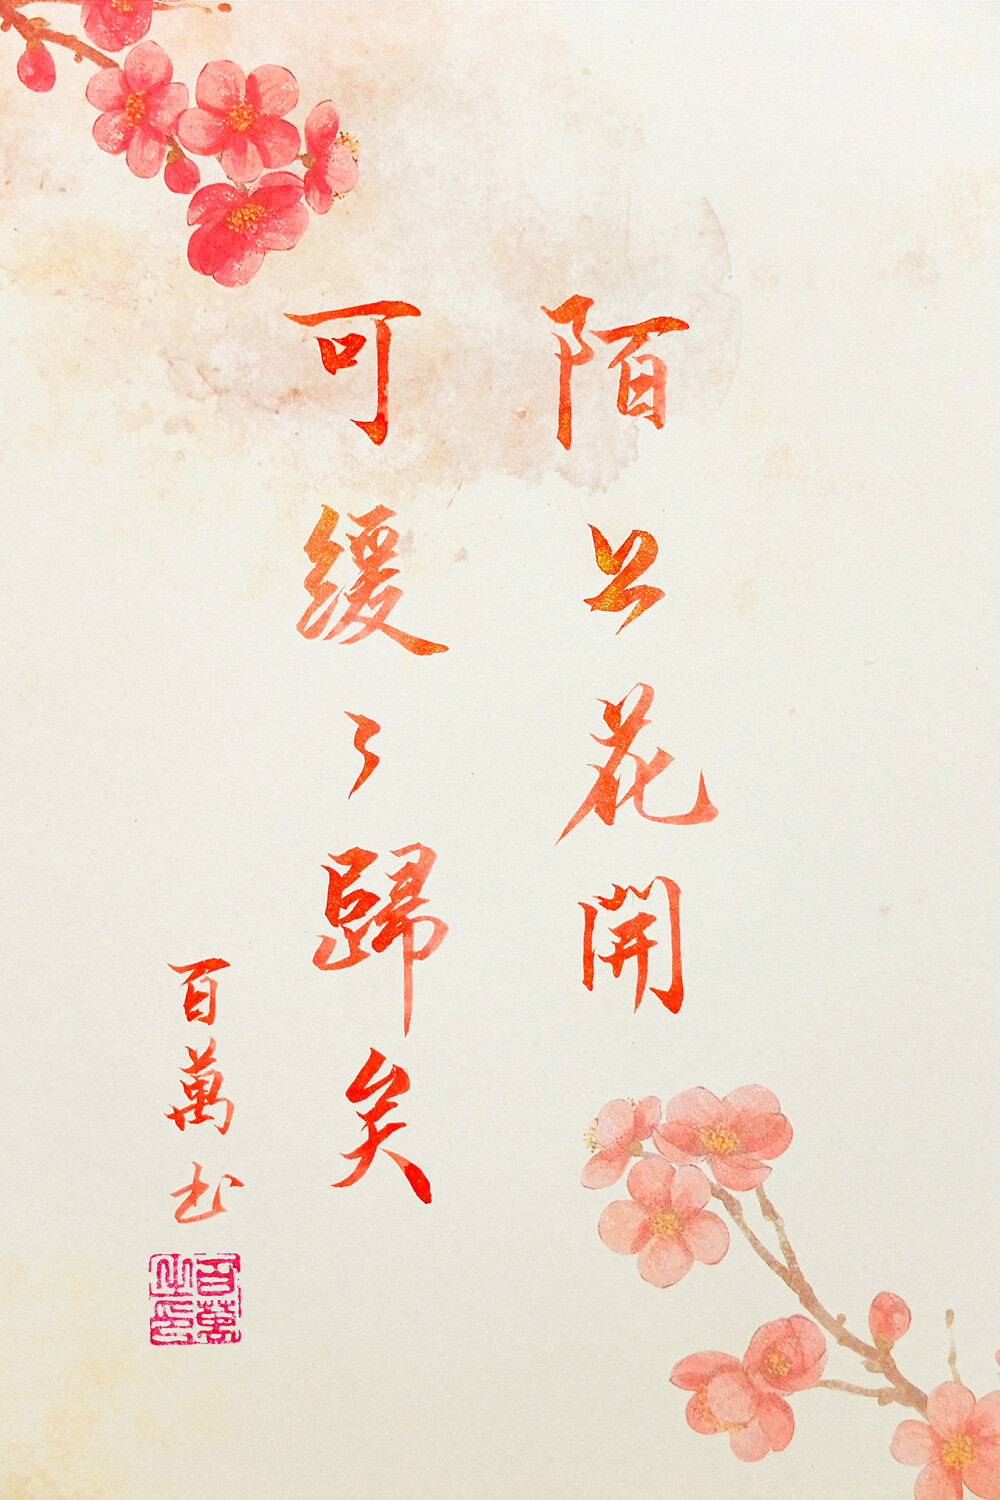 陌上花開
可緩々歸矣
百萬书
百萬之印